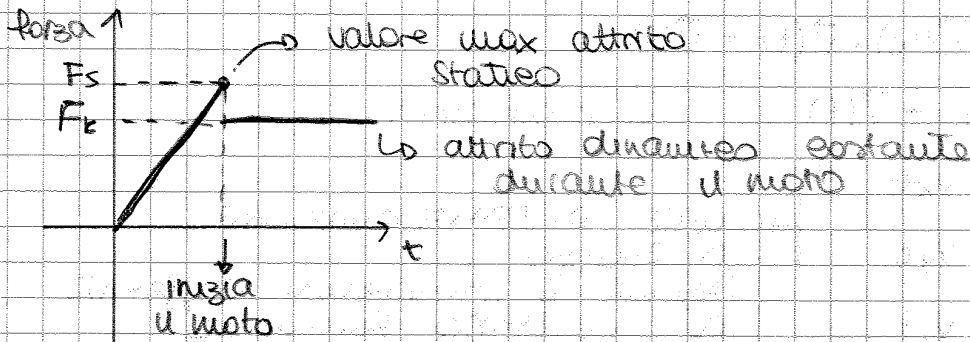 forza
valore max attrito
statico
Fs
Fk
↳ attrito dinamico costante
durante il moto
t
inizia
il moto